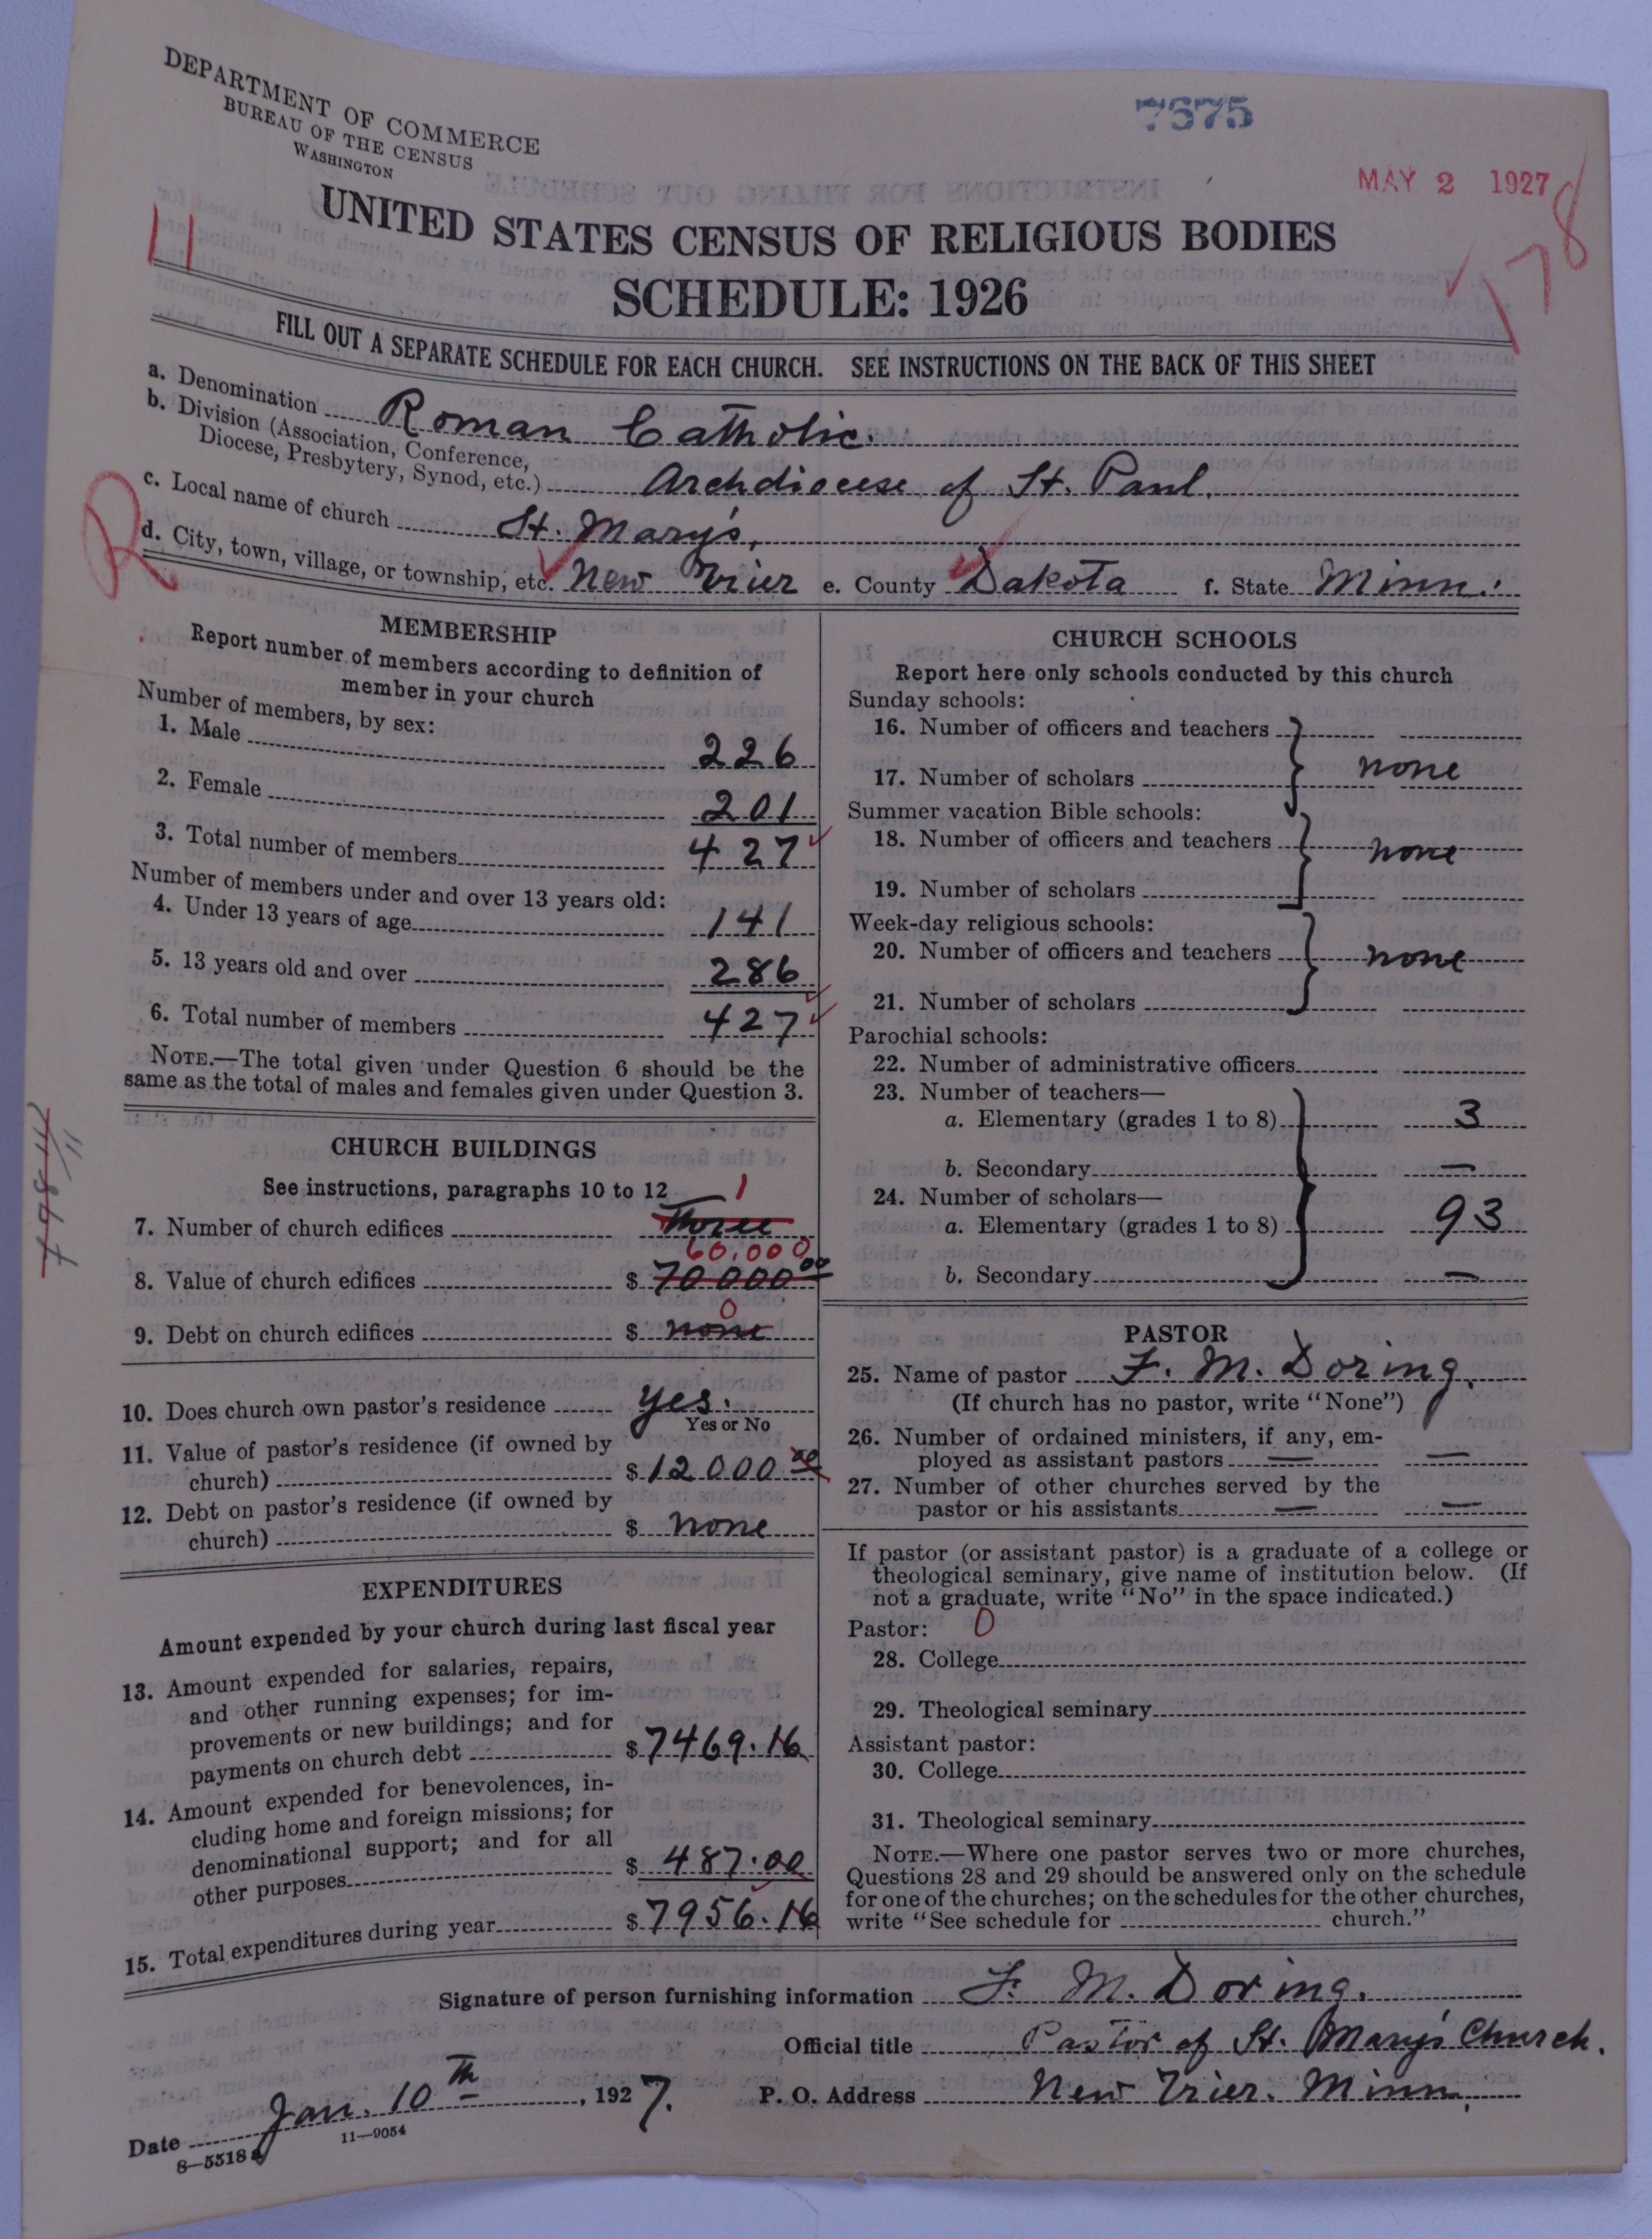 DEPARTMENT OF COMMERCE
BUREAU OF THE CENSUS
WASHINGTON
7675
MAY 2 1927
11
178
UNITED STATES CENSUS OF RELIGIOUS BODIES
SCHEDULE: 1926
FILL OUT A SEPARATE SCHEDULE FOR EACH CHURCH. SEE INSTRUCTIONS ON THE BACK OF THIS SHEET
a. Denomination Roman Catholic.
b. Division (Association, Conference,
Diocese, Presbytery, Synod, etc.) Archdiocese of St. Paul.
c. Local name of church St. Mary's,
R
d. City, town, village, or township, etc. New Trier e. County Dakota f. State Minn.
MEMBERSHIP
Report number of members according to definition of
member in your church
Number of members, by sex:
1. Male 226
2. Female 201
3. Total number of members 427
Number of members under and over 13 years old:
4. Under 13 years of age 141
5. 13 years old and over 286
6. Total number of members 427
NOTE.—The total given under Question 6 should be the
same as the total of males and females given under Question 3.
CHURCH BUILDINGS
See instructions, paragraphs 10 to 12
1
7. Number of church edifices Three
60,000
8. Value of church edifices $ 70 000 00
0
9. Debt on church edifices $ none
10. Does church own pastor's residence yes.
Yes or No
11. Value of pastor's residence (if owned by
church) $ 12 000 00
12. Debt on pastor's residence (if owned by
church) $ none
EXPENDITURES
Amount expended by your church during last fiscal year
13. Amount expended for salaries, repairs,
and other running expenses; for im-
provements or new buildings; and for
payments on church debt $ 7469.16
14. Amount expended for benevolences, in-
cluding home and foreign missions; for
denominational support; and for all
other purposes $ 487.00
15. Total expenditures during year $ 7956.16
CHURCH SCHOOLS
Report here only schools conducted by this church
Sunday schools:
16. Number of officers and teachers
none
17. Number of scholars
Summer vacation Bible schools:
18. Number of officers and teachers
none
19. Number of scholars
Week-day religious schools:
20. Number of officers and teachers
none
21. Number of scholars
Parochial schools:
22. Number of administrative officers
23. Number of teachers—
a. Elementary (grades 1 to 8) 3
b. Secondary —
24. Number of scholars—
a. Elementary (grades 1 to 8) 93
b. Secondary —
PASTOR
25. Name of pastor F. M. Doring.
(If church has no pastor, write "None")
26. Number of ordained ministers, if any, em-
ployed as assistant pastors — —
27. Number of other churches served by the
pastor or his assistants — —
If pastor (or assistant pastor) is a graduate of a college or
theological seminary, give name of institution below. (If
not a graduate, write "No" in the space indicated.)
Pastor: 0
28. College
29. Theological seminary
Assistant pastor:
30. College
31. Theological seminary
NOTE.—Where one pastor serves two or more churches,
Questions 28 and 29 should be answered only on the schedule
for one of the churches; on the schedules for the other churches,
write "See schedule for church."
Signature of person furnishing information F. M. Doring.
Official title Pastor of St. Mary's Church.
Date Jan. 10th, 1927. P. O. Address New Trier. Minn.
8—5518a 11—9054